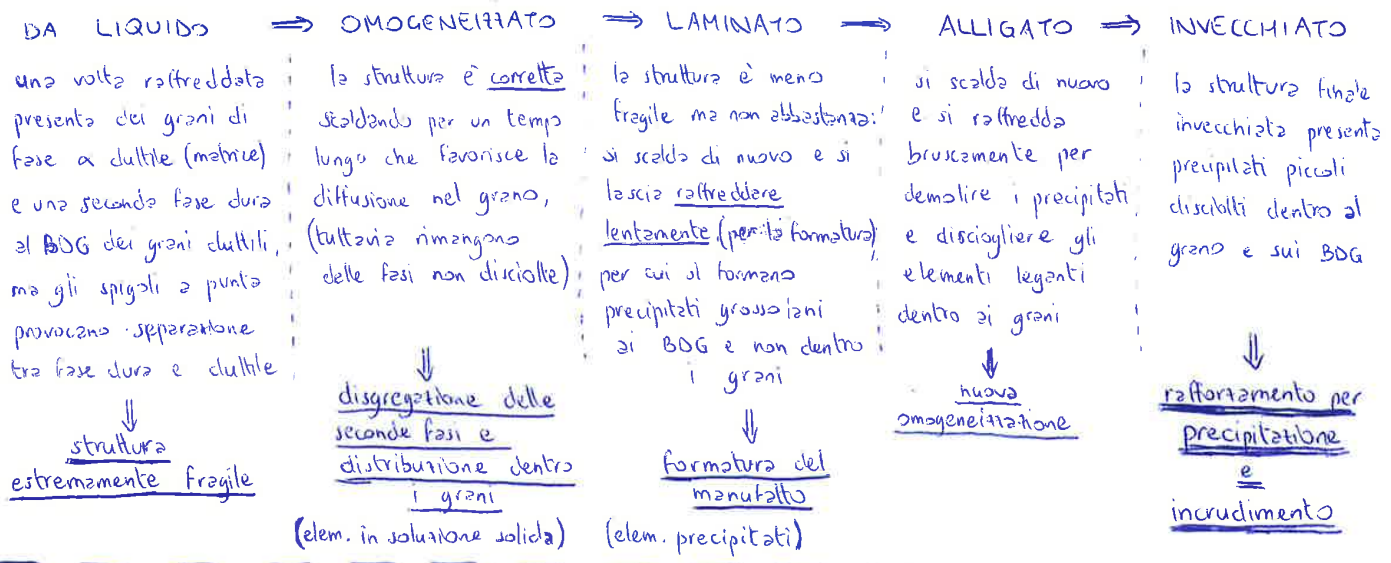 DA LIQUIDO ⇒ OMOGENEIZZATO ⇒ LAMINATO ⇒ ALLIGATO ⇒ INVECCHIATO
una volta raffreddata
presenta dei grani di
fase α duttile (matrice)
e una seconda fase dura
al BDG dei grani duttili,
ma gli spigoli a punta
provocano separazione
tra fase dura e duttile
⇓
struttura
estremamente fragile
la struttura è corretta
scaldando per un tempo
lungo che favorisce la
diffusione nel grano,
(tuttavia rimangono
delle fasi non disciolte)
⇓
disgregazione delle
seconde fasi e
distribuzione dentro
i grani
(elem. in soluzione solida)
la struttura è meno
fragile ma non abbastanza:
si scalda di nuovo e si
lascia raffreddare
lentamente (per la formatura)
per cui si formano
precipitati grossolani
ai BDG e non dentro
i grani
⇓
formatura del
manufatto
(elem. precipitati)
si scalda di nuovo
e si raffredda
bruscamente per
demolire i precipitati
e disciogliere gli
elementi leganti
dentro ai grani
⇓
nuova
omogeneizzazione
la struttura finale
invecchiata presenta
precipitati piccoli
disciolti dentro al
grano e sui BDG
⇓
rafforzamento per
precipitazione
e
incrudimento